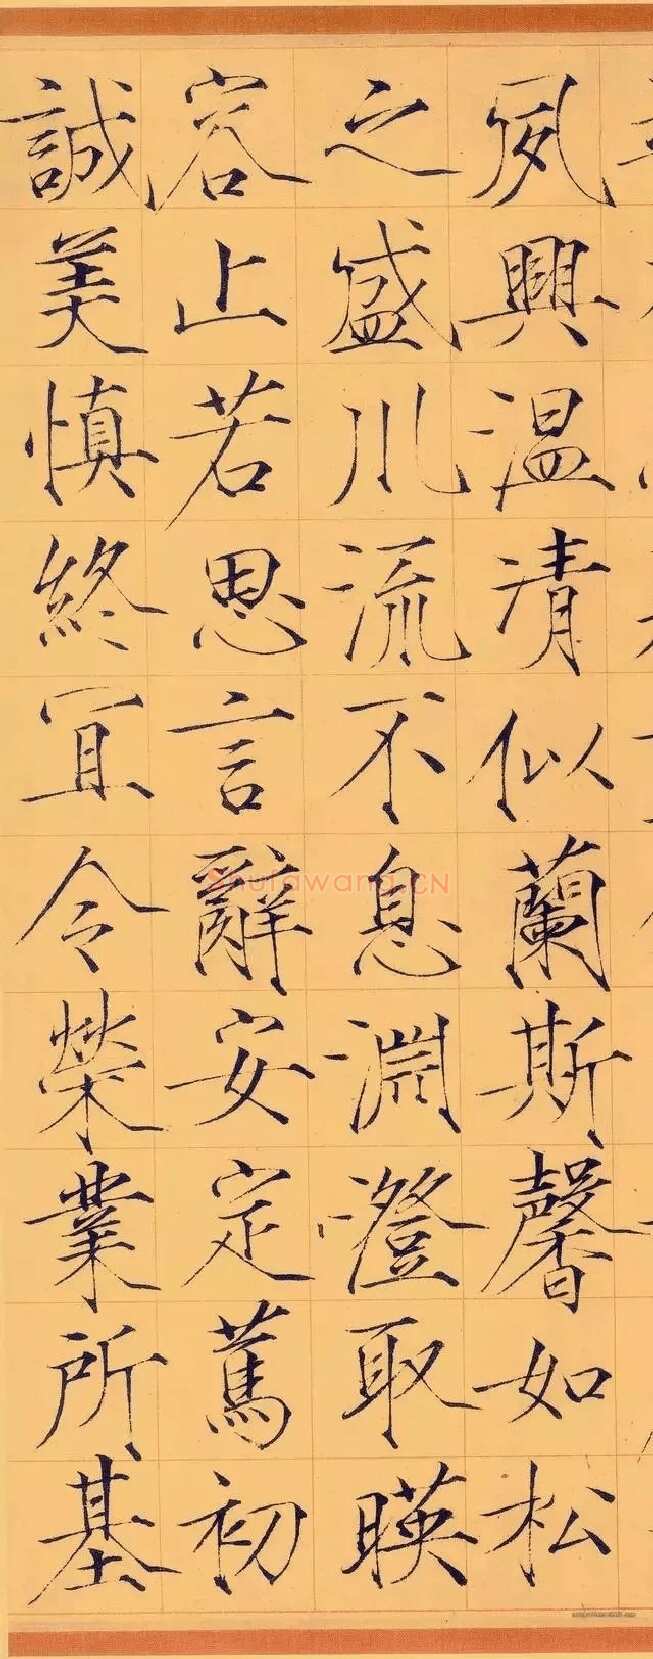 夙興温清似蘭斯馨如松
之盛川流不息淵澄取暎
容止若思言辭安定篤初
誠美慎終宜令榮業所基
Shufawang.CN